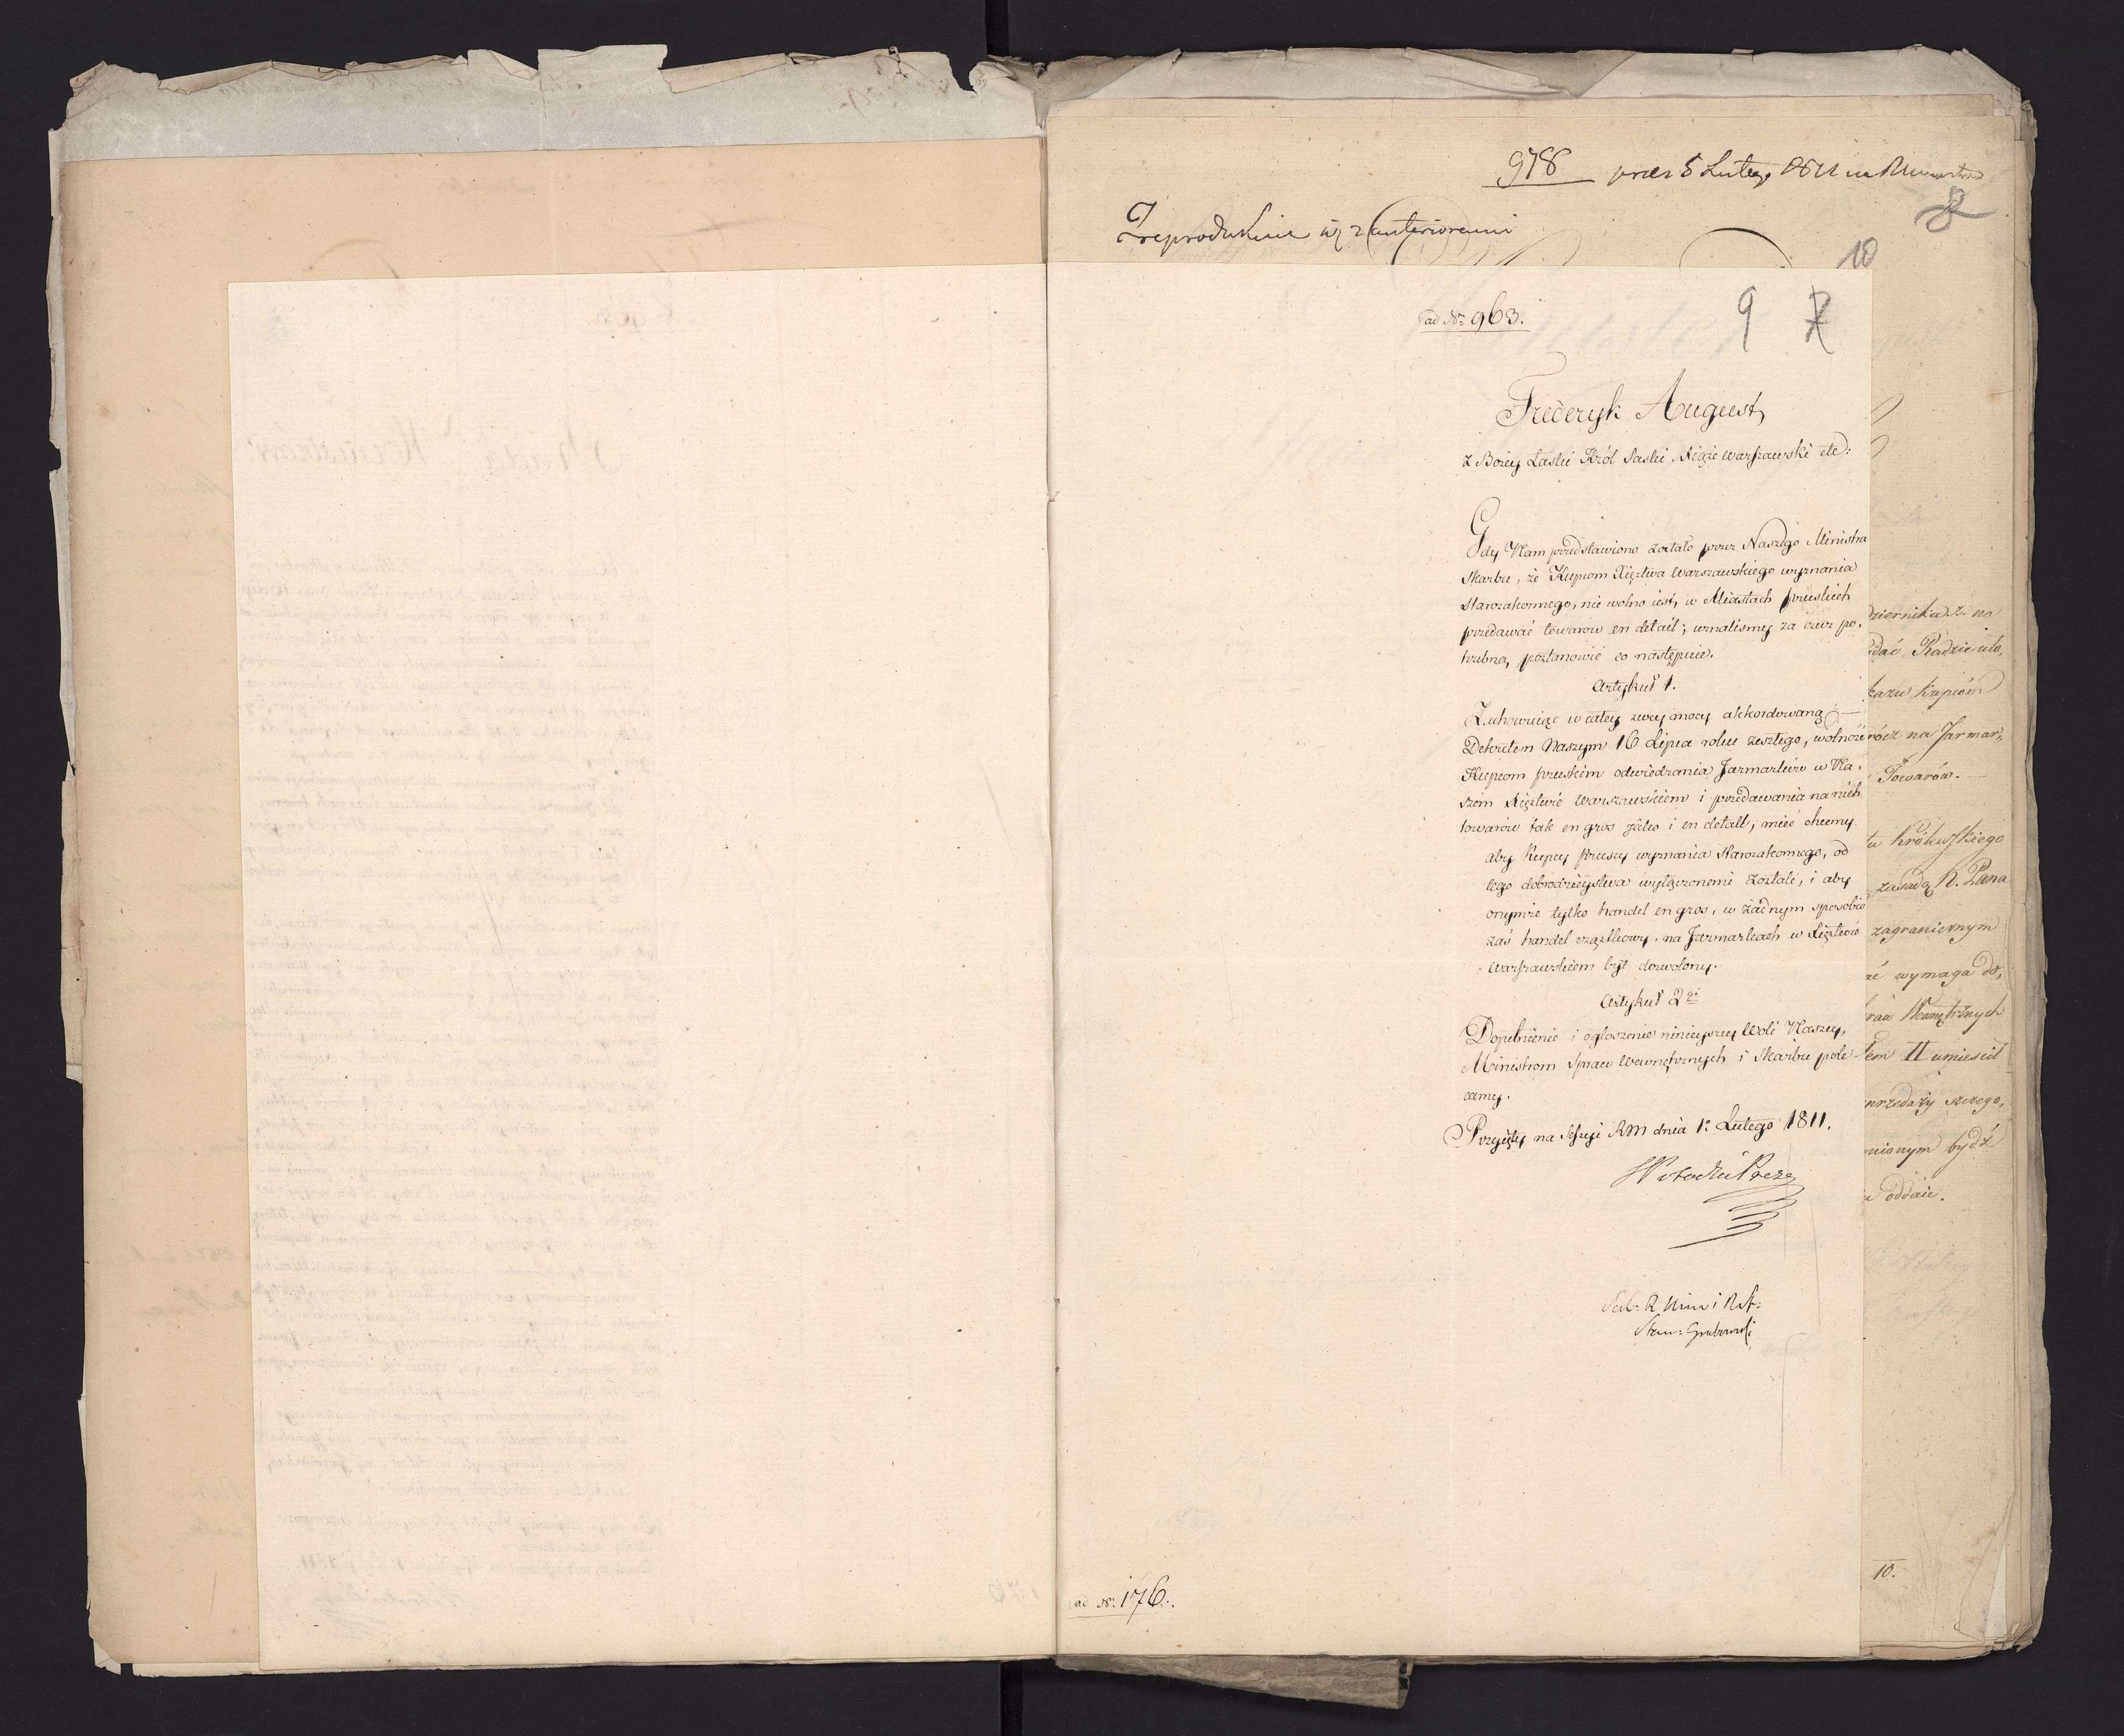 978 prez 5 Lutego 1811 na
8
Zreprodukuie się z anterioremi
10
ad Nr 963.
9 7
Frederyk August
z Bożey Łaski Król Saski, Xiąże Warszawski etc:
Gdy Nam przedstawiono zostało przez Naszego Ministra
Skarbu, że Kupcom Xięztwa Warszawskiego wyznania
Starozakonnego, nie wolno iest, w Miastach pruskich
przedawać towarow en detail; uznalismy za rzecz po-
trzebną, postanowić co następuie.
Artykuł 1.
Zachowuiąc w całey swey mocy akkordowaną
Dekretem Naszym 16 Lipca roku zeszłego, wolność
Kupcom pruskim odwiedzania Jarmarków w Na-
szém Xięztwie Warszawskiém i przedawania na nich
towarów tak en gros jako i en detail, mieć chcemy
aby Kupcy pruscy wyznania Starozakonnego, od
tego dobrodzieystwa wyłączonemi zostali, i aby
onymże tylko handel en gros, w żadnym sposobie
zaś handel cząstkowy, na Jarmarkach w Xięztwie
Warszawskiém był dozwolony.
Artykuł 2gi
Dopełnienie i ogłoszenie ninieyszey Woli Naszey,
Ministrom Spraw Wewnętrznych i Skarbu pole-
camy.
Przyięty na Sessyi RM dnia 1o Lutego 1811.
Potocki Prezes
Sek: R Min i R St:
Stan: Grabowski
ad Nr 176.
dziernika r. z. na
dać Radzie uło,
kazu kupców
rócz na Jarmar,
Towarów.
tu Królewskiego
zasadą K. Pana
zagranicznym
ać wymaga do,
raw Wewnętrznych
łem II umieścił
przedaży szczegó,
nionym bydź
oddaie.
10.